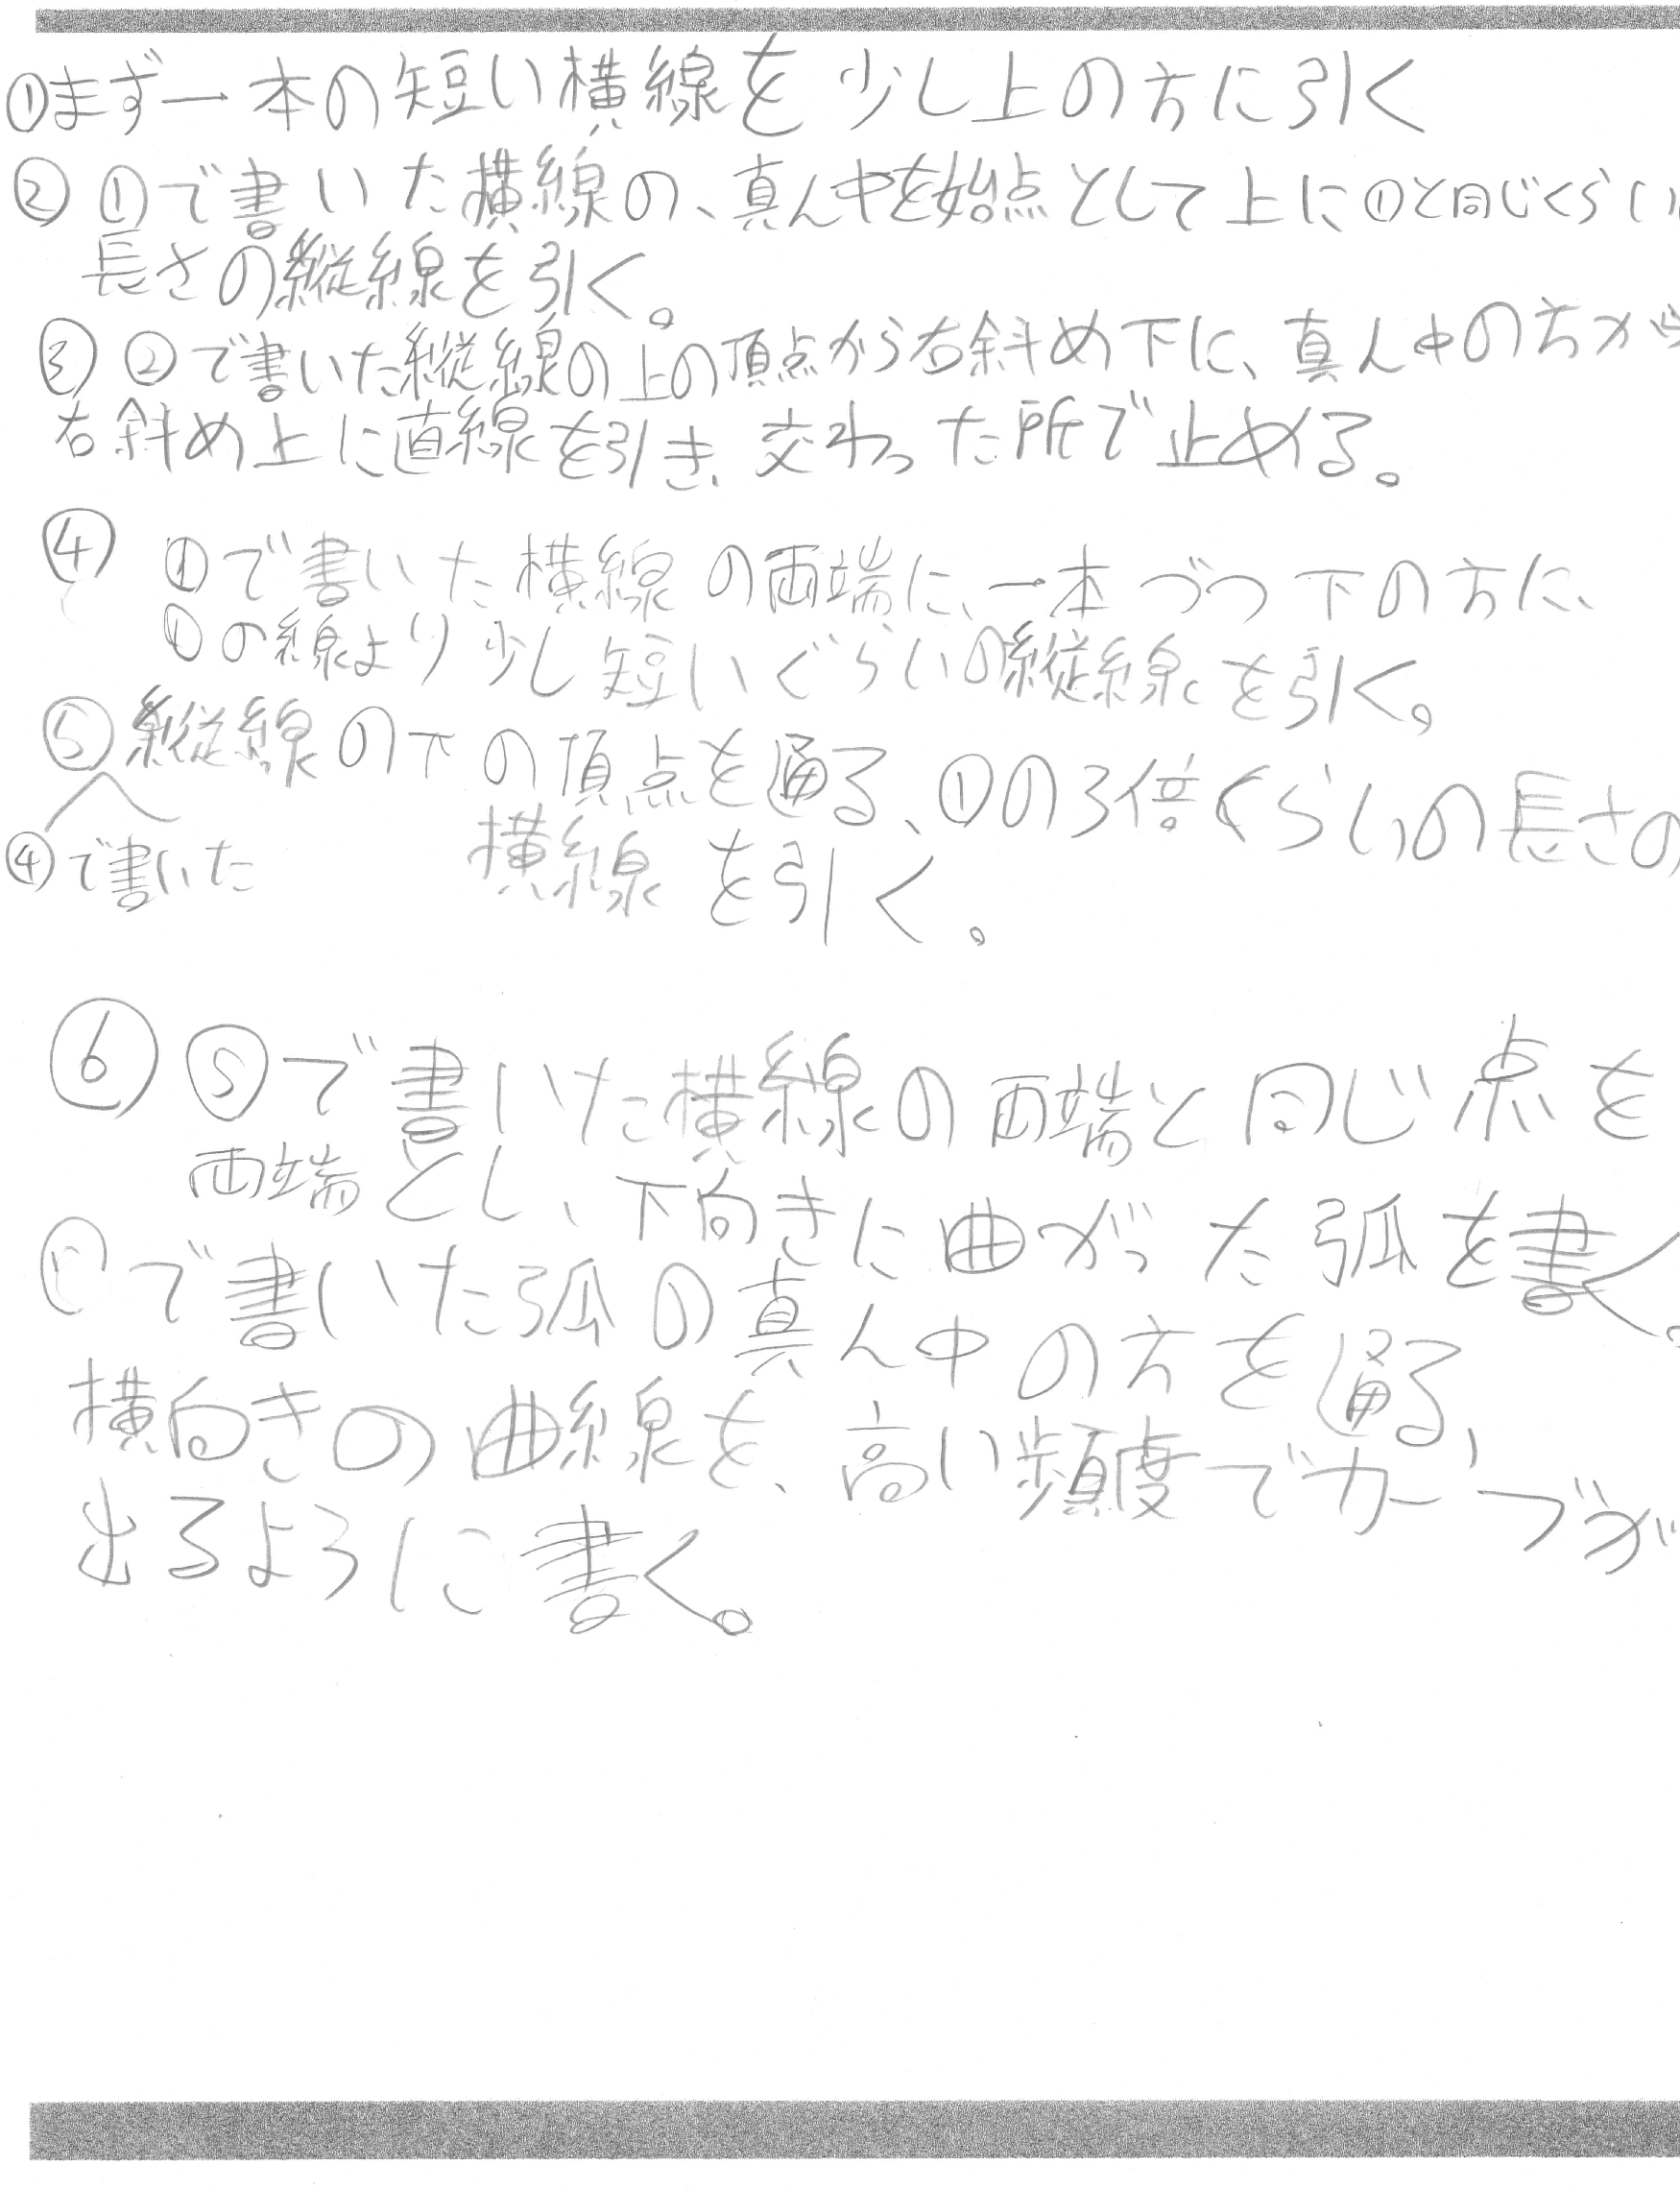 ①まず一本の短い横線を少し上の方に引く
② ①で書いた横線の、真ん中を始点として上に①と同じくらい
長さの縦線を引く。
③ ②で書いた縦線の上の頂点から右斜め下に、真ん中の方から
右斜め上に直線を引き、交わった所で止める。
④ ①で書いた横線の両端に、一本づつ下の方に、
①の線より少し短いぐらいの縦線を引く。
⑤縦線の下の頂点を通る、①の3倍くらいの長さの
④で書いた 横線を引く。
⑥ ⑤で書いた横線の両端と同じ点を
両端とし、下向きに曲がった弧を書く。
で書いた弧の真ん中の方を通る、
横向きの曲線を、高い頻度でカーブが
出るように書く。